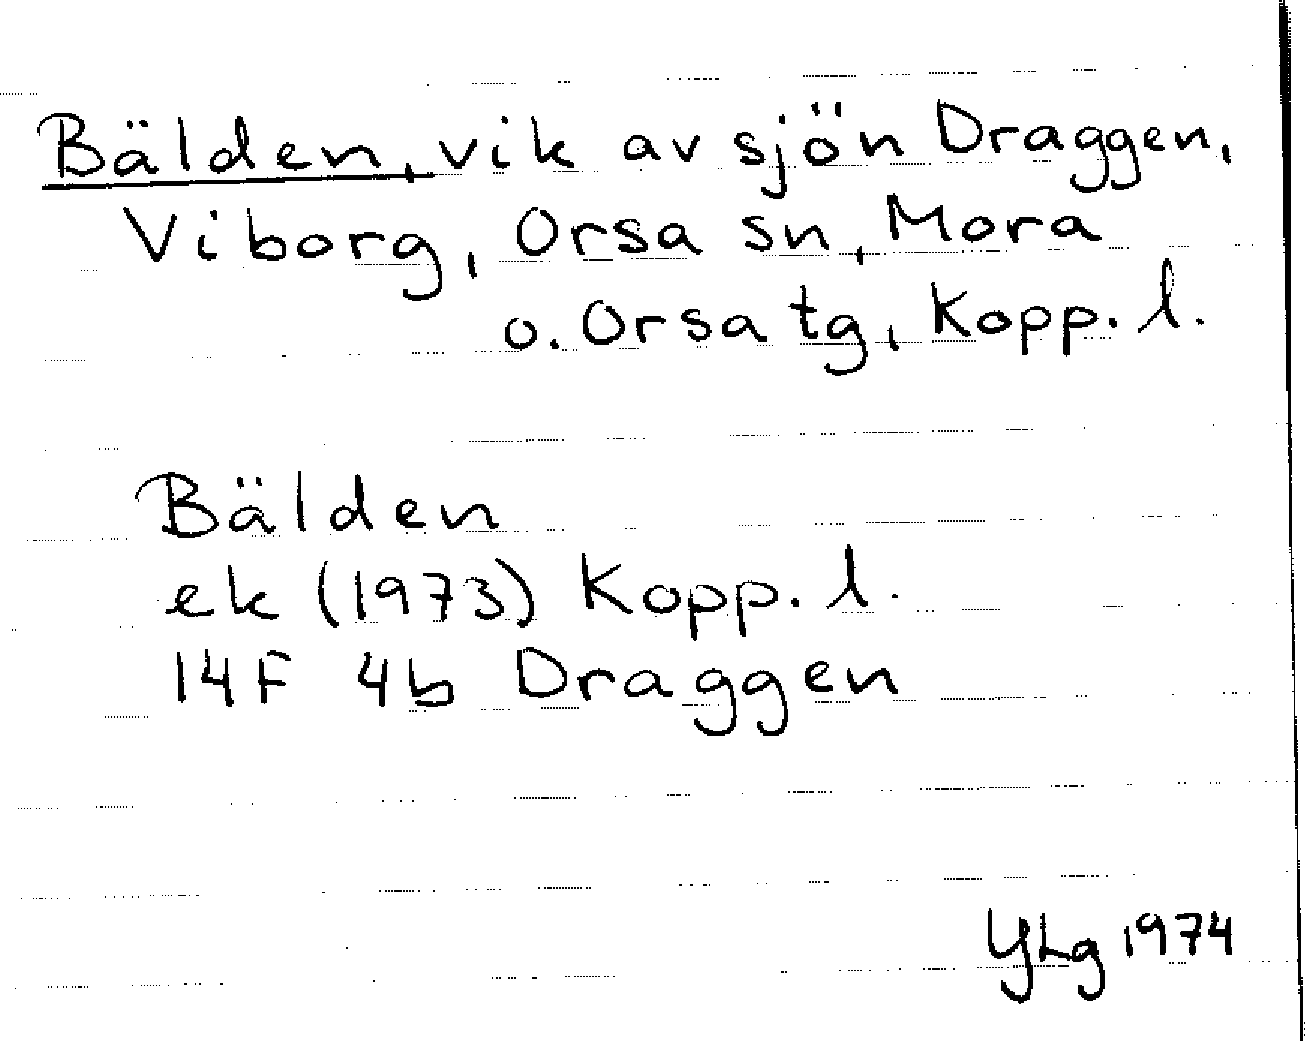 Bälden, vik av sjön Draggen,
Viborg, Orsa sn, Mora
o. Orsa tg, Kopp. l.
Bälden
ek (1973) Kopp. l.
14F 4b Draggen
YLg 1974